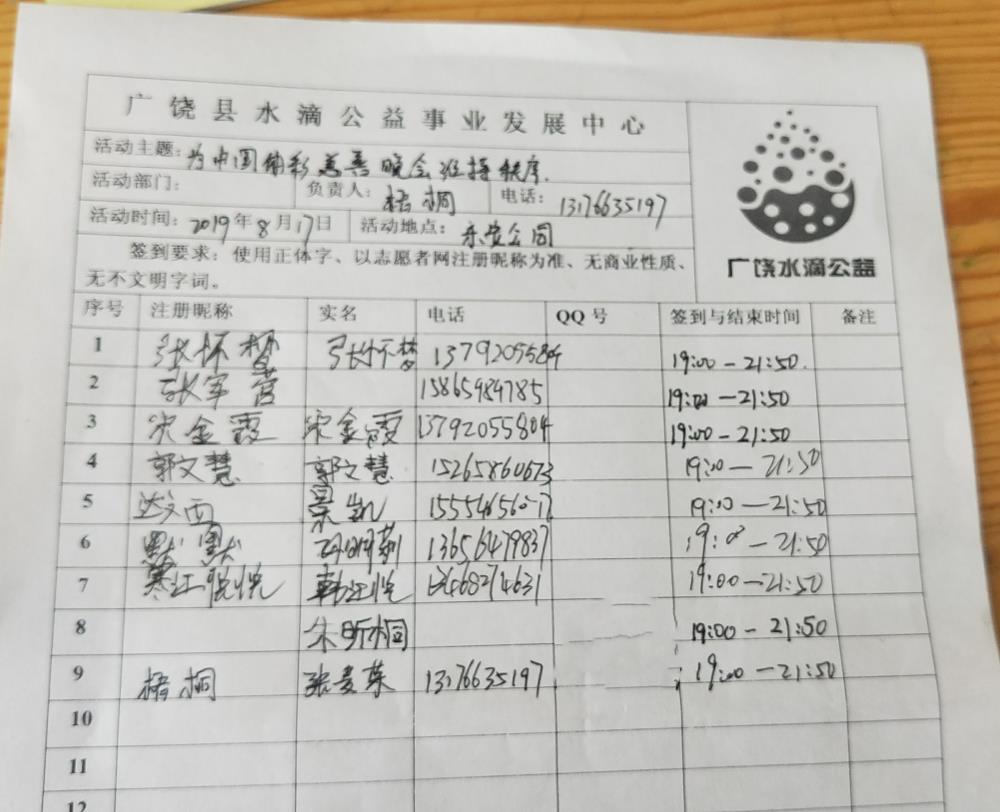 广饶县水滴公益事业发展中心
活动主题：为中国体彩慈善晚会维持秩序.
活动部门： 负责人：梧桐 电话：13176635197
活动时间：2019年8月17日 活动地点：乐安公园
签到要求：使用正体字、以志愿者网注册昵称为准、无商业性质、
无不文明字词。
广饶水滴公益
序号 注册昵称 实名 电话 QQ号 签到与结束时间 备注
1 张怀梦 张怀梦 13792055804 19:00—21:50.
2 张军营 15865984785 19:00—21:50
3 宋金霞 宋金霞 13792055804 19:00—21:50
4 郭文慧 郭文慧 15265860673 19:00—21:50
5 达文西 19:00—21:50
6 默默 13656479837 19:00—21:50
7 寒江悦悦 韩江悦 13468274631 19:00—21:50
8 朱昕桐 19:00—21:50
9 梧桐 张麦荣 13176635197 19:00—21:50
10
11
12